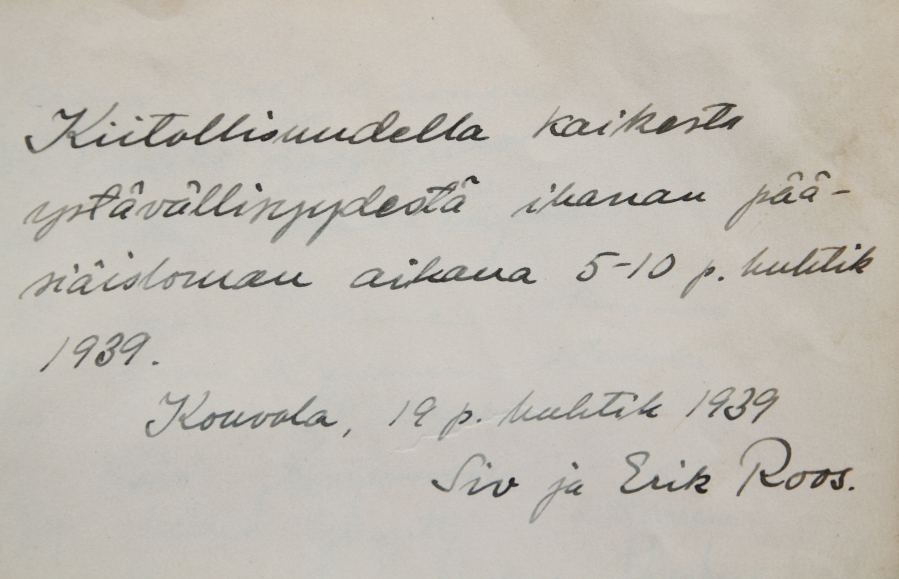 Kiitollisuudella kaikesta
ystävällisyydestä ihanan pää-
siäisloman aikana 5-10 p. huhtik
1939.
Kouvola, 19 p. huhtik 1939
Siv ja Erik Roos.